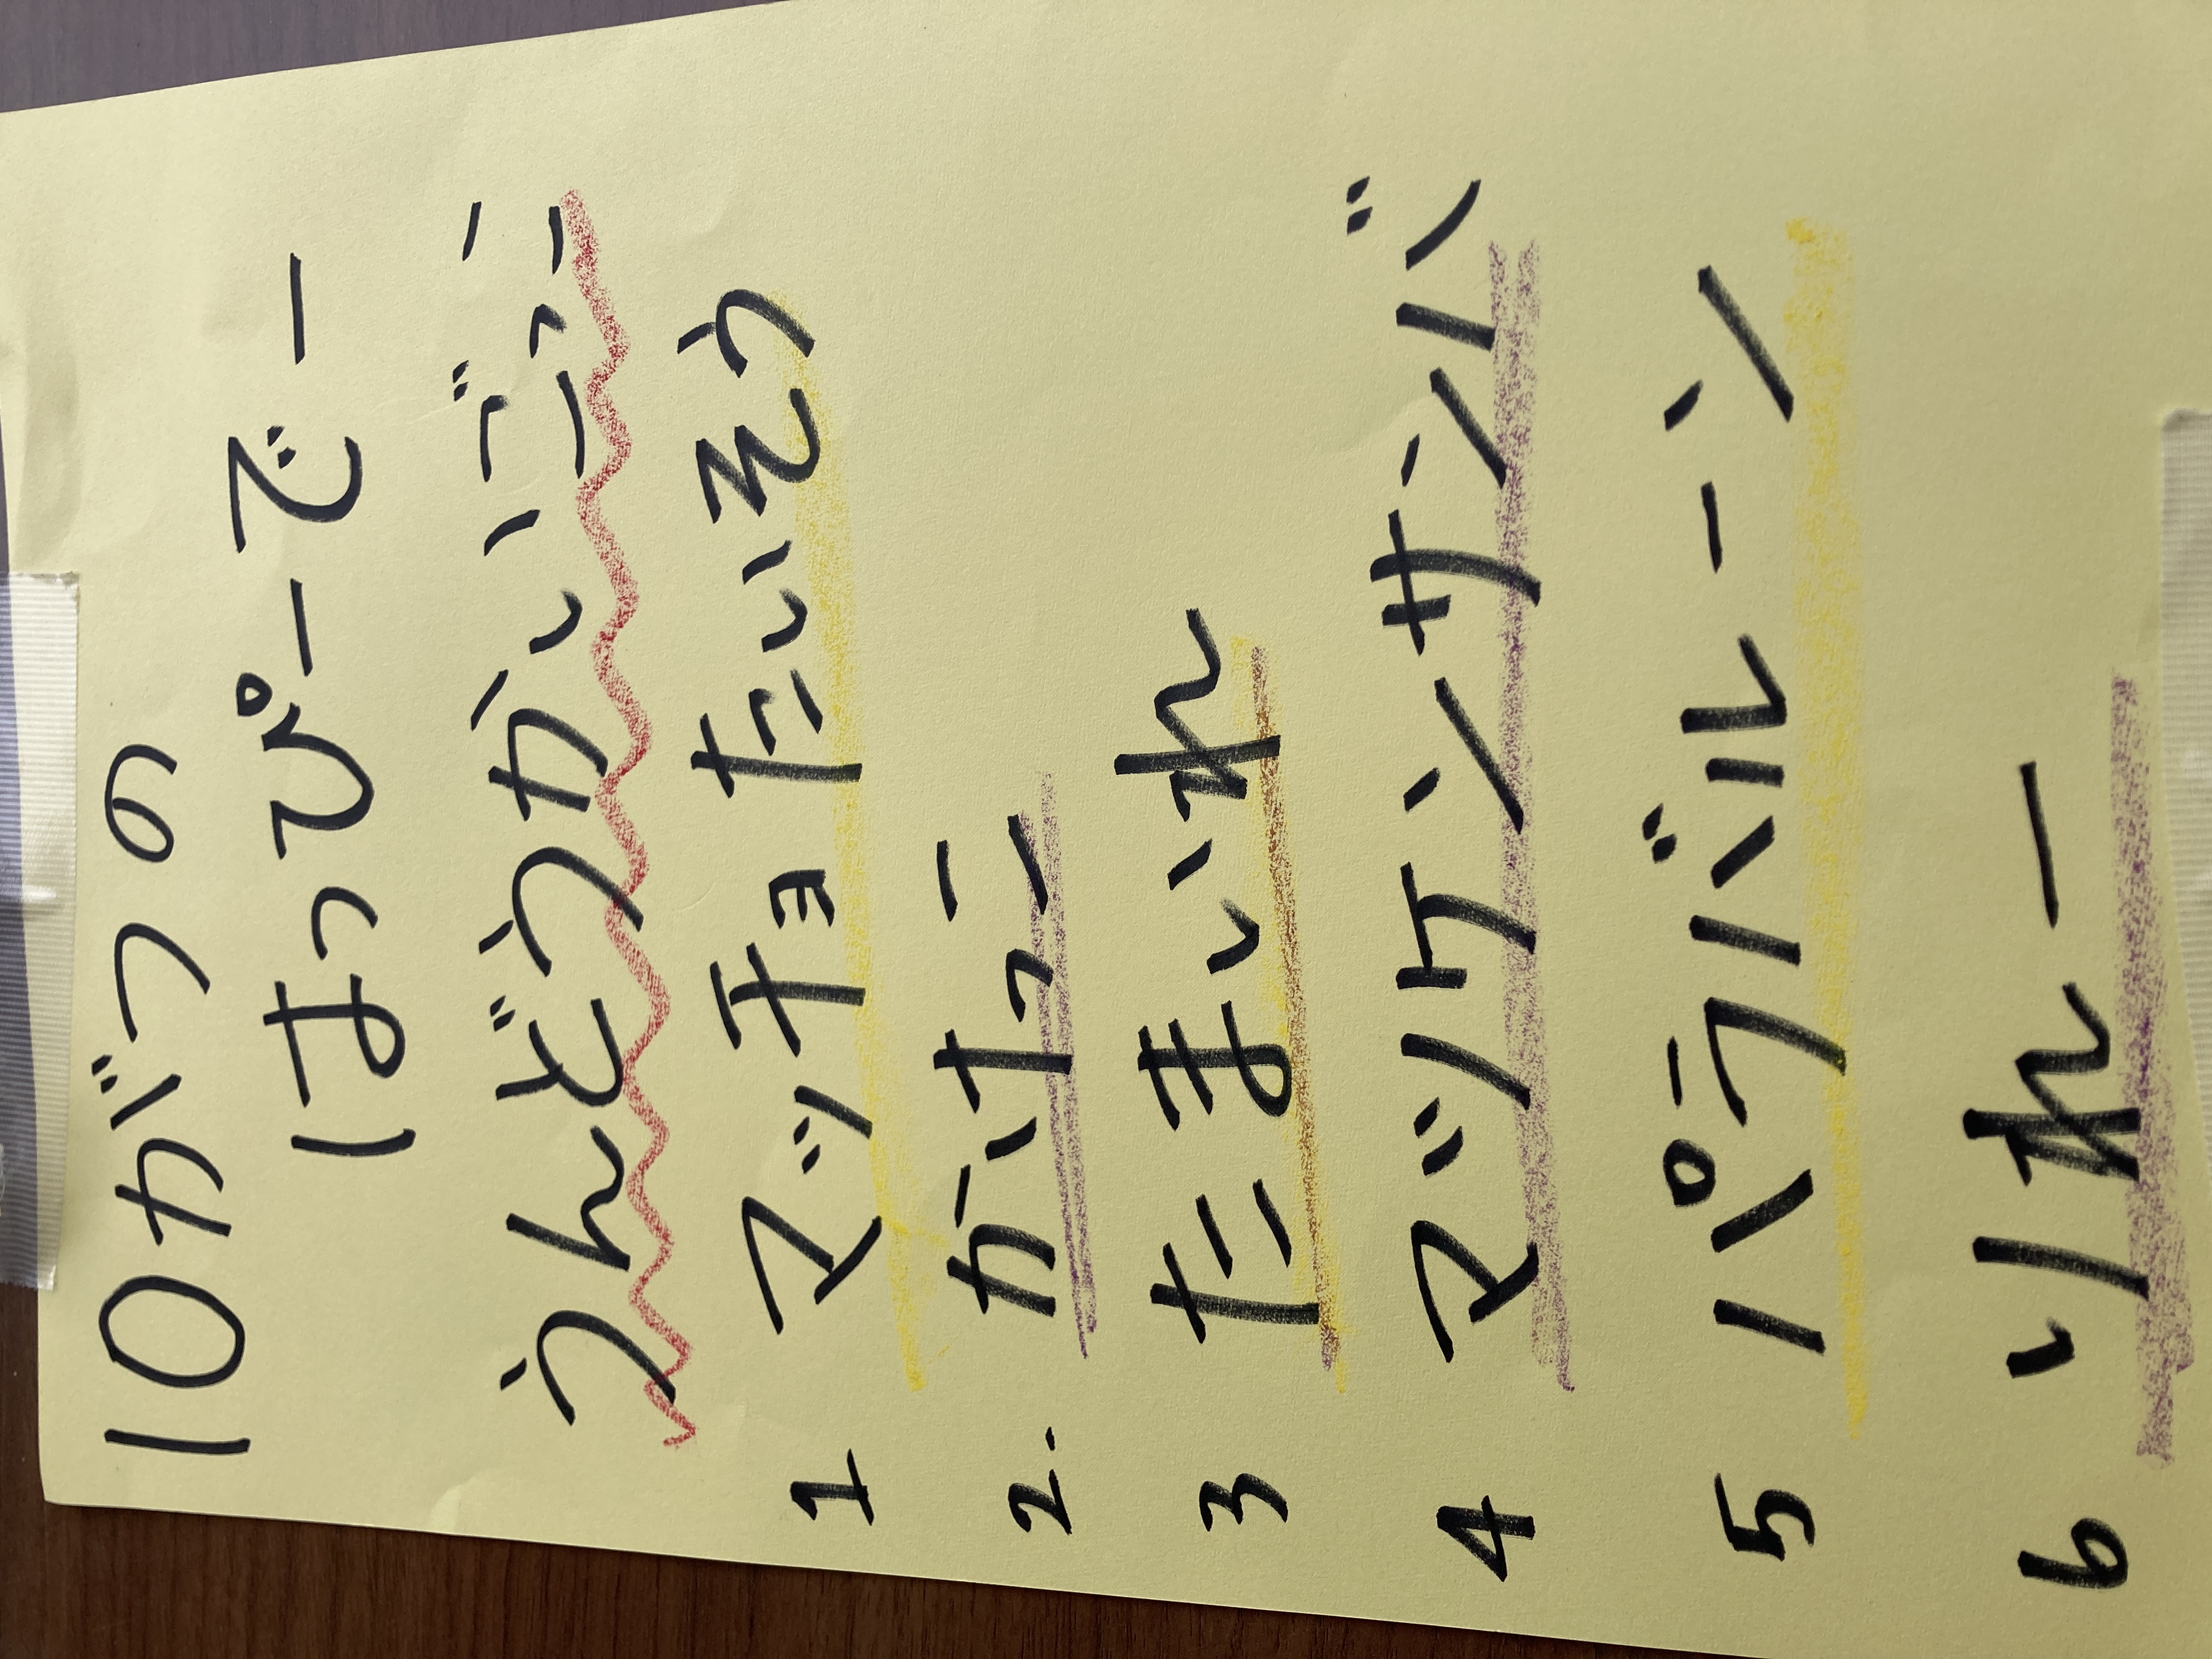 10がつの
はっぴーでー
うんどうかいごっこ
1 マッチョたいそう
2. かけっこ
3 たまいれ
4 マツケンサンバ
5 パラバルーン
6 リれー